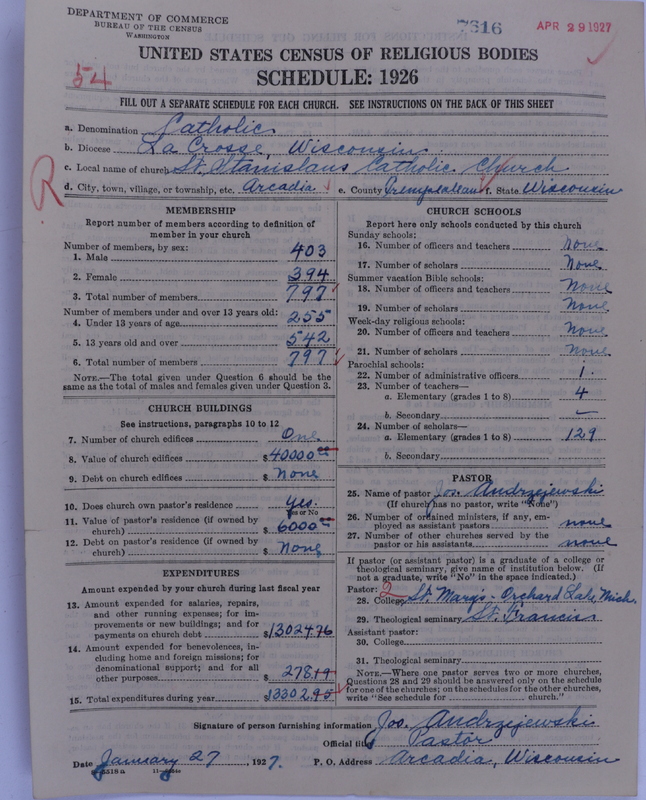 DEPARTMENT OF COMMERCE
BUREAU OF THE CENSUS
WASHINGTON
7616
APR 29 1927
UNITED STATES CENSUS OF RELIGIOUS BODIES
SCHEDULE: 1926
54
FILL OUT A SEPARATE SCHEDULE FOR EACH CHURCH. SEE INSTRUCTIONS ON THE BACK OF THIS SHEET
a. Denomination Catholic
b. Diocese La Crosse, Wisconsin
c. Local name of church St. Stanislaus Catholic Church
R
d. City, town, village, or township, etc. Arcadia e. County Trempealeau f. State Wisconsin
MEMBERSHIP
Report number of members according to definition of
member in your church
Number of members, by sex:
1. Male 403
2. Female 394
3. Total number of members 797
Number of members under and over 13 years old:
4. Under 13 years of age 255
5. 13 years old and over 542
6. Total number of members 797
NOTE.—The total given under Question 6 should be
same as the total of males and females given under Question 3.
CHURCH BUILDINGS
See instructions, paragraphs 10 to 12
7. Number of church edifices One
8. Value of church edifices $ 40000 00
9. Debt on church edifices $ None
10. Does church own pastor's residence? yes.
Yes or No
11. Value of pastor's residence (if owned by
church) $ 6000 00
12. Debt on pastor's residence (if owned by
church) $ None
EXPENDITURES
Amount expended by your church during last fiscal year
13. Amount expended for salaries, repairs,
and other running expenses; for im-
provements or new building; and for
payments on church debt $ 13024.76
14. Amount expended for benevolences, in-
cluding home and foreign missions; for
denominational support; and for all
other purposes $ 278.19
15. Total expenditures during year 13302.95
CHURCH SCHOOLS
Report here only schools conducted by this church
Sunday schools:
16. Number of officers and teachers None
17. Number of scholars None
Summer vacation Bible schools:
18. Number of officers and teachers None
19. Number of scholars None
Week-day religious schools:
20. Number of officers and teachers None
21. Number of scholars None
Parochial schools:
22. Number of administrative officers 1.
23. Number of teachers—
a. Elementary (grades 1 to 8) 4
b. Secondary –
24. Number of scholars—
a. Elementary (grades 1 to 8) 129
b. Secondary
PASTOR
25. Name of pastor Jos. Andrzejewski
(If church has no pastor, write "None")
26. Number of ordained ministers, if any, em-
ployed as assistant pastors none
27. Number of other churches served by the
pastor or his assistants none
If pastor (or assistant pastor) is a graduate of a college or
theological seminary, give name of institution below. (If
not a graduate, write "No" in the space indicated.)
Pastor: 2
28. College St. Mary's - Orchard Lake, Mich.
29. Theological seminary St. Francis
Assistant pastor:
30. College
31. Theological seminary
NOTE.—Where one pastor serves two or more churches,
Questions 28 and 29 should be answered only on the schedule
for one of the churches; on the schedules for the other churches,
write "See schedule for church."
Signature of person furnishing information Jos. Andrzejewski
Official title Pastor
Date January 27, 1927. P. O. Address Arcadia, Wisconsin